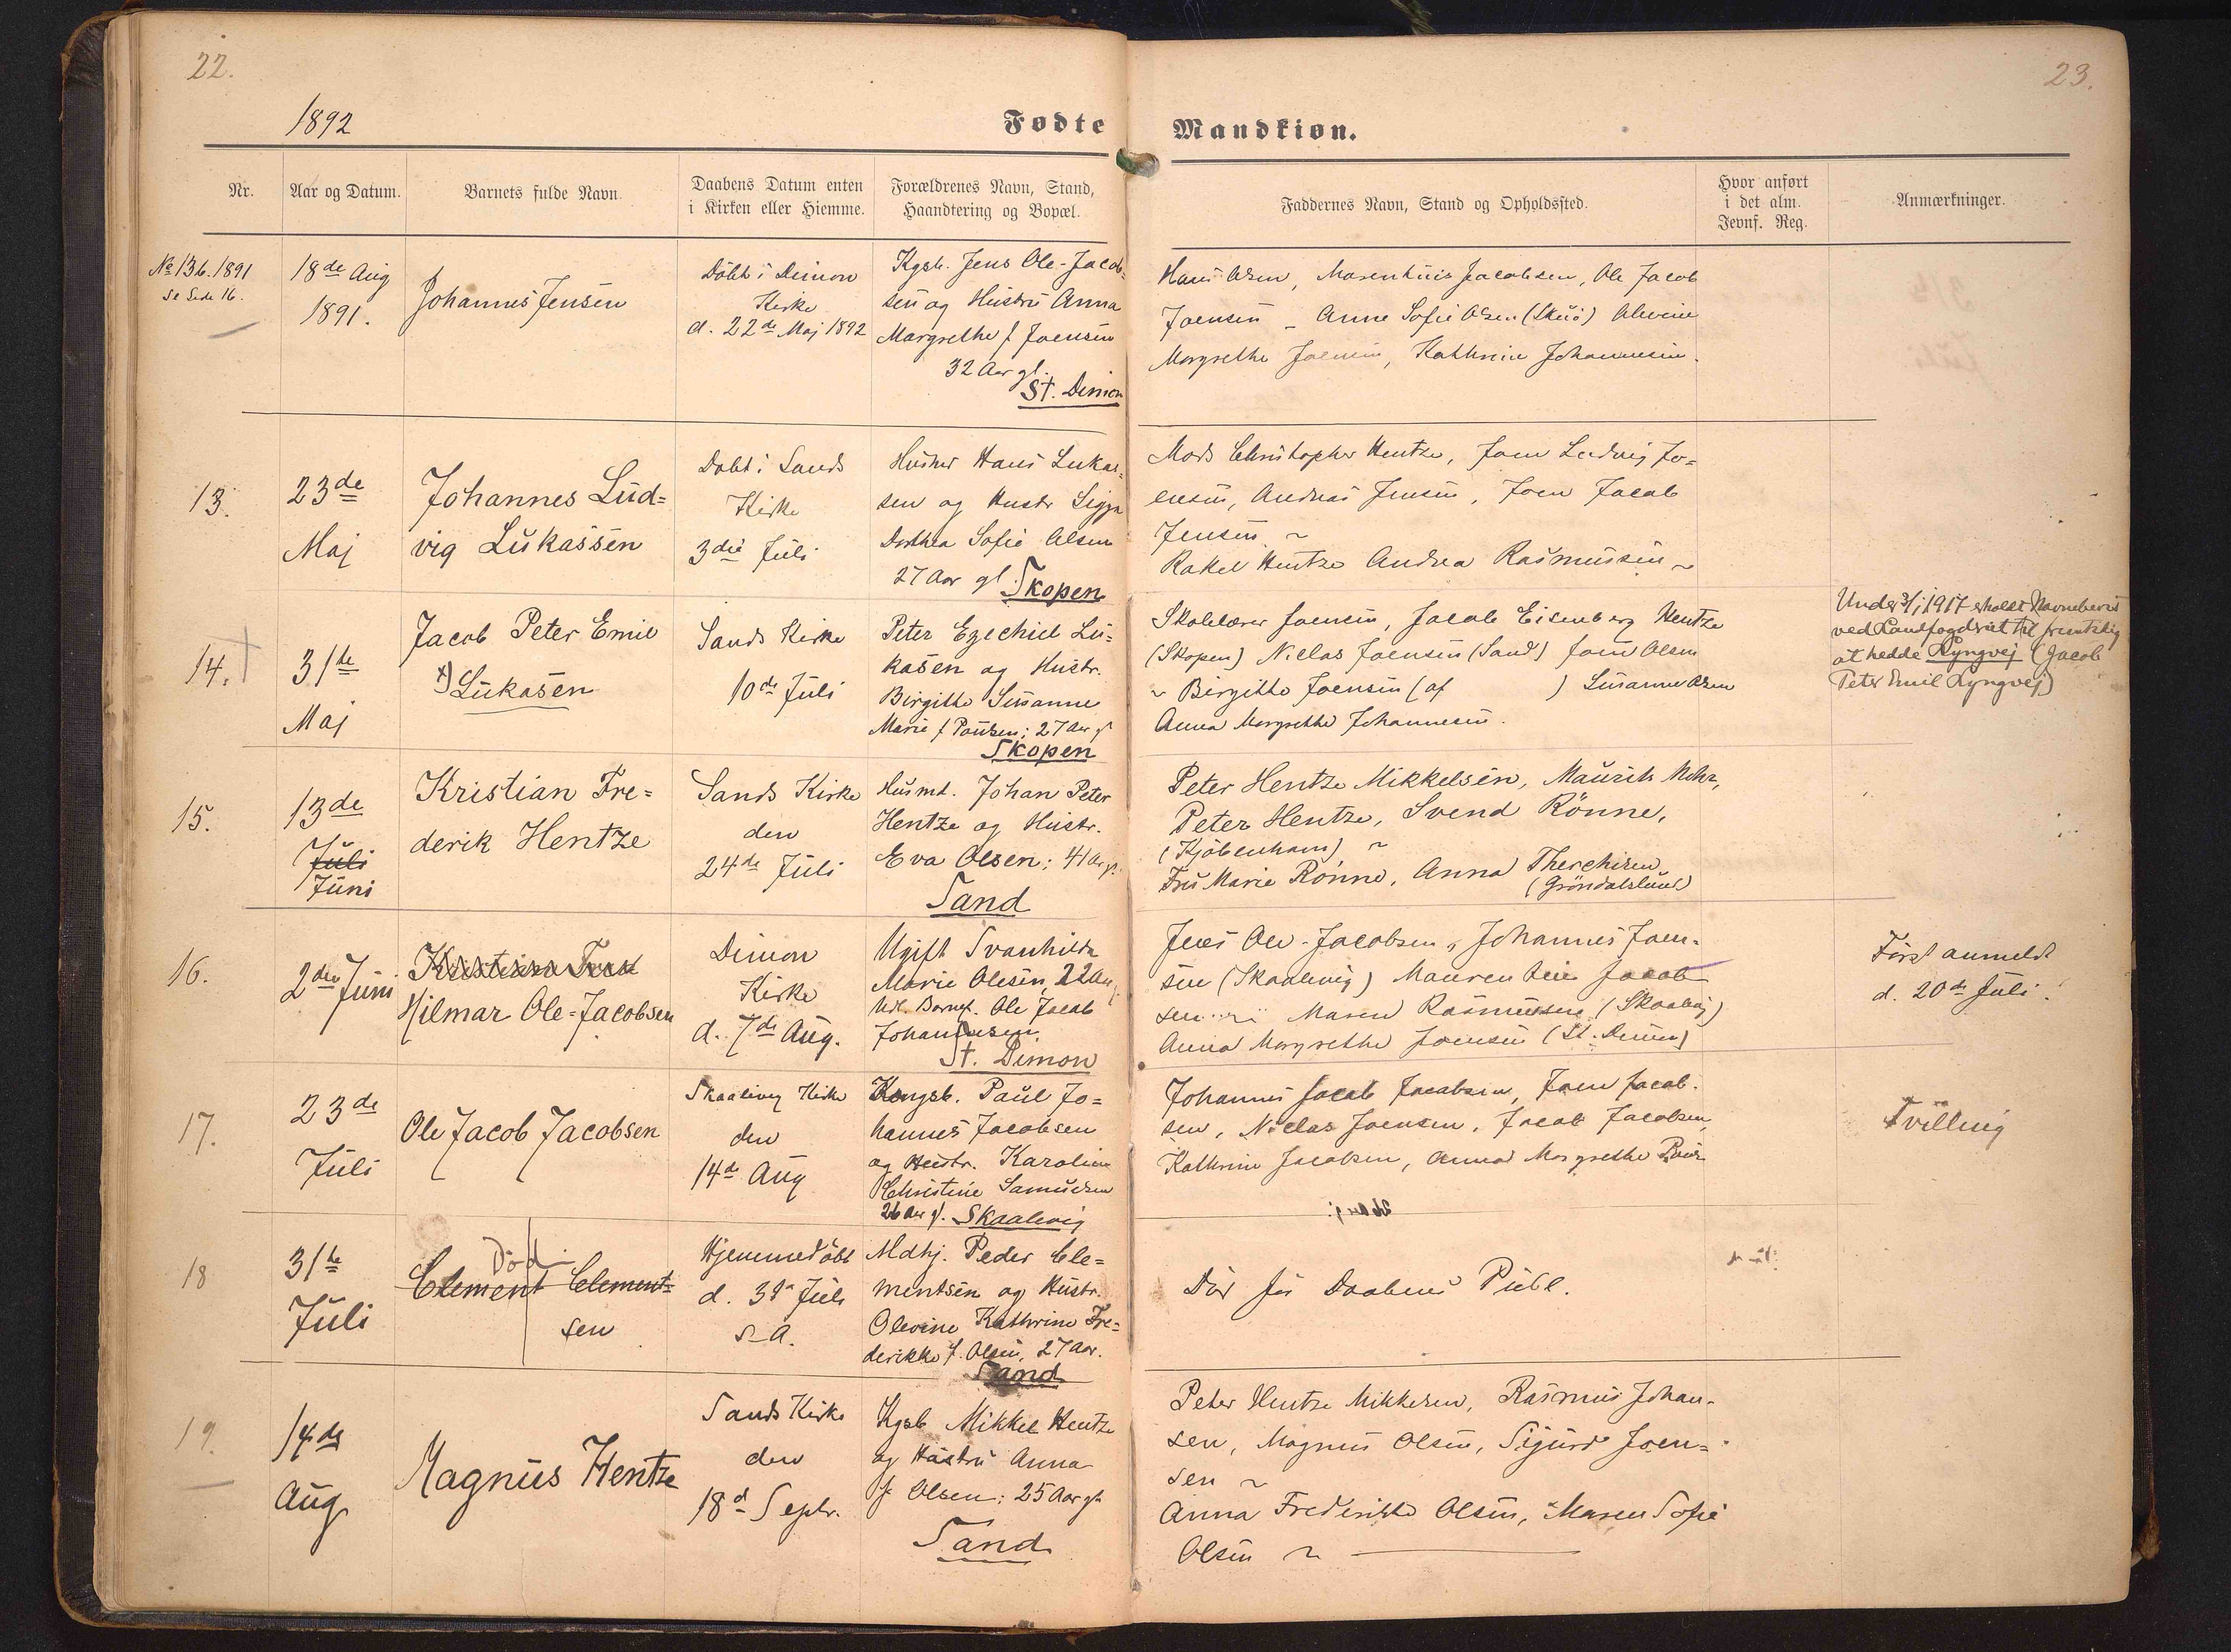 22.
23.
1892
Fødte Mandkiøn.
Nr.
Aar og Datum.
Barnets fulde Navn
Daabens Datum enten
i Kirken eller Hiemme.
Forældrenes Navn, Stand,
Haandtering og Bopæl.
Faddernes Navn, Stand og Opholdssted.
Hvor anført
i det alm.
Jevnf. Reg.
Anmærkninger.
No 13b. 1891
se Side 16.
18de Aug
1891.
Johannes Jensen
Döbt i Dimon
Kirke
d. 22de Maj 1892
Kgsb. Jens Ole-Jacob-
sen og Hustru Anna
Margrethe f Joensen
32 Aar gl.
St. Dimon
Hans Olsen, Jacobsen, Ole Jacob
Joensen _ Anne Sofie Olsen (Skuö) Olevine
Margrethe Joensen, Kathrine Johannesen.
13.
23de
Maj
Johannes Lud=
vig Lukassen
Döbt i Sands
Kirke
3die Juli
Husmd Hans Lukas-
sen og Hustr Sigga
Dorthea Sofie Olsen
27 Aar gl.
Skopen
Mads Christopher Hentze, Joen Ludvig Jo=
ensen, Andreas Jensen, Joen Jacob
Jensen ~
Rakel Hentze Andrea Rasmussen ~
14. †
31te
Maj
Jacob Peter Emil
x) Lukasen
Sands Kirke
10de Juli
Peter Ezechiel Lu=
kasen og Hustr.
Birgitte Susanne
Marie f Poulsen; 27 Aar gl
Skopen
Skolelærer Joensen, Jacob Eisenberg Hentze
(Skopen) Niclas Joensen (Sand) Joen Olsen
~ Birgitte Joensen (af ) Susanne Olsen
Anna Margrethe Johannesen.
Under 3/1 1917 erholdt Navnebevis
ved Landfogderiet til fremtidig
at hedde Lyngvej (Jacob
Peter Emil Lyngvej)
15.
13de
Juli
Juni
Kristian Fre=
derik Hentze
Sands Kirke
den
24de Juli
Husmd. Johan Peter
Hentze og Hustr.
Eva Olsen; 41 Aar gl.
Sand
Peter Hentze Mikkelsen, Maurits Mohr,
Peter Hentze, Svend Rönne,
(Kjöbenhavn) ~
Fru Marie Rönne, Anna Therchisen
(Gröndalslund)
16.
2den Juni
Kristian Fred
Hilmar Ole-Jacobsen
Dimon
Kirke
d. 7de Aug.
Ugift Svanhilda
Marie Olesen, 22 Aar
Udl. Barnef. Ole Jacob
Johannesen.
St. Dimon
Jens Ole-Jacobsen, Johannes Joen-
sen (Skaalevig) Jacob
sen Maren Rasmussen (Skaalevig)
Anna Margrethe Joensen (St. Dimon)
Först anmeldt
d. 20de Juli.
17.
23de
Juli
Ole Jacob Jacobsen
Skaalevig Kirke
den
14de Aug
Kongsb. Paul Jo=
hannes Jacobsen
og Hustr. Karoline
Christine Samuelsen
26 Aar gl. Skaalevig
Johannes Jacob Jacobsen, Joen Jacob-
sen, Niclas Joensen, Jacob Jacobsen,
Kathrine Jacobsen, Anna Margrethe
Tvilling
18
31te
Juli
Död
Clement Clement=
sen
Hjemmedöbt
d. 31te Juli
s. A.
Mdhj. Peder Cle=
mentsen og Hustr.
Olevine Kathrine Fre=
derikke f. Olsen, 27 Aar.
Sand
Död för Daabens Publ.
19.
14de
Aug
Magnus Hentze
Sands Kirke
den
18de Septr.
Kgsb Mikkel Hentze
og Hustru Anna
f Olsen; 25 Aar gl
Sand
Peter Hentze Mikkelsen, Rasmus Johan-
sen, Magnus Olsen, Sigurd Joen=
sen ~
Anna Frederikke Olsen, Maren Sofie
Olsen ~